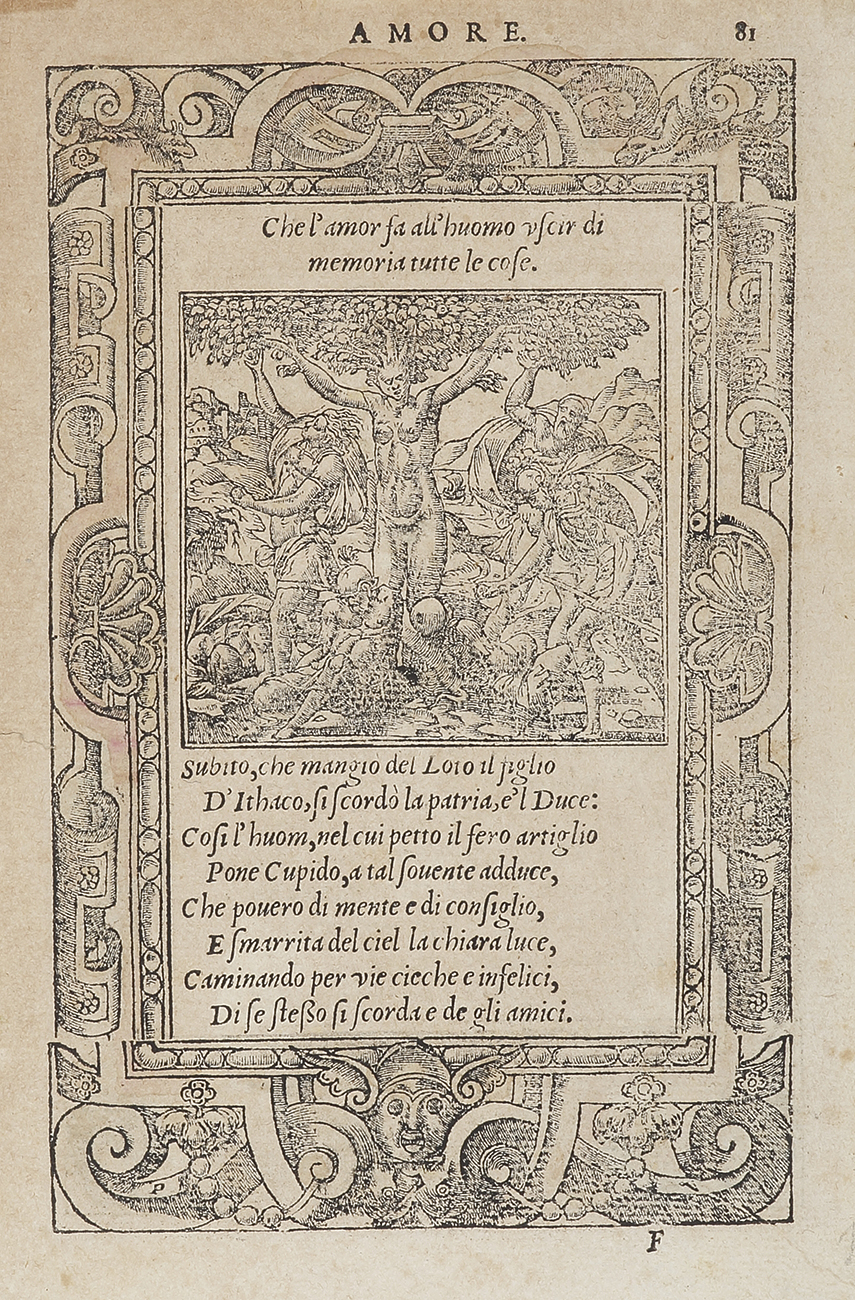 AMORE. 81
Che l'amor fa all'huomo vſcir di
memoria tutte le coſe.
Subito, che mangio del Loto il figlio
D'Ithaco, ſi ſcordò la patria, e'l Duce:
Coſi l'huom, nel cui petto il fero artiglio
Pone Cupido, a tal ſouente adduce,
Che pouero di mente e di conſiglio,
E ſmarrita del ciel la chiara luce,
Caminando per vie cieche e infelici,
Di ſe ſteßo ſi ſcorda e de gli amici.
F